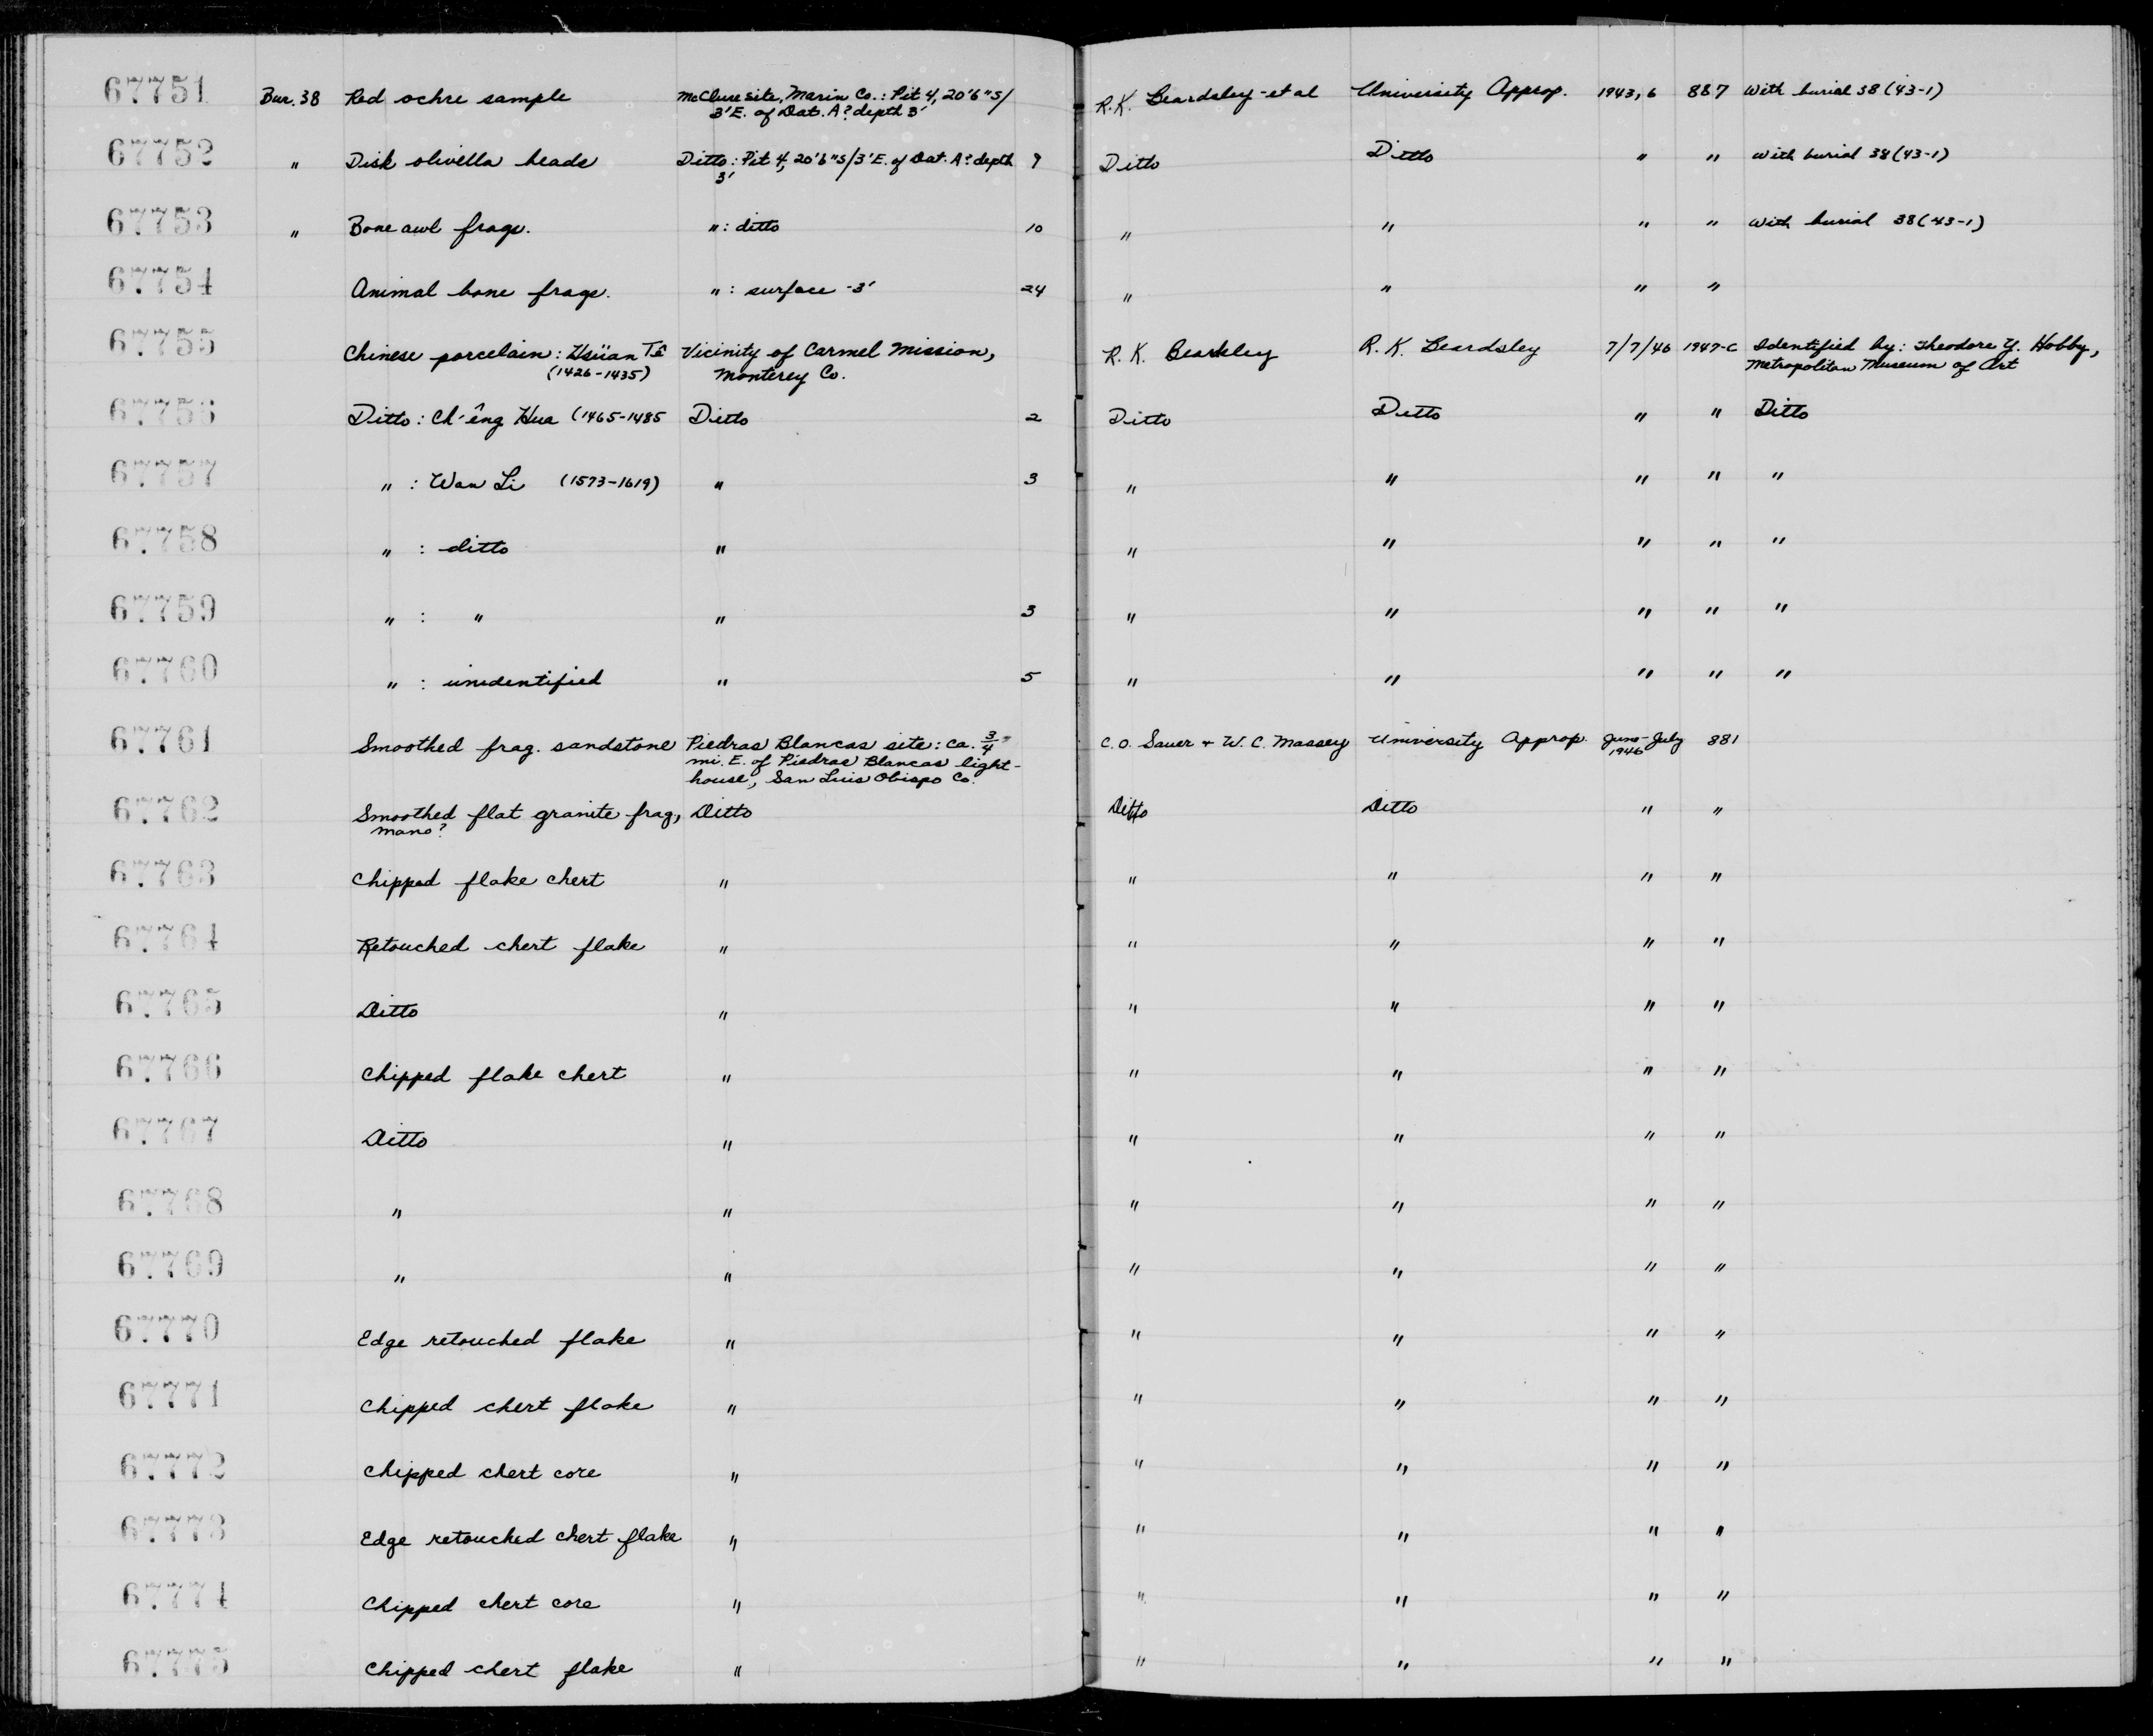 67751 Bur. 38 Red ochre sample McClure site, Marin Co.: Pit 4, 20'6"S/ R.K. Beardsley-et al University Approp. 1943, 6 887 With burial 38 (43-1)
3'E. of Dat. A? depth 3'
67752 " Disk olivella beads Ditto: Pit 4, 20'6"S/3'E. of Dat. A? depth 9 Ditto Ditto " " With burial 38 (43-1)
3'
67753 " Bone awl frags. ": ditto 10 " " " " With burial 38 (43-1)
67754 Animal bone frags. ": surface -3' 24 " " " "
67755 Chinese porcelain: Hsüan Tê Vicinity of Carmel Mission, R. K. Beardsley 7/7/46 1947-C Identified by: Theodore Y. Hobby,
(1426-1435) Monterey Co. Metropolitan Museum of Art
67756 Ditto: Ch'êng Hua (1465-1485 Ditto 2 Ditto Ditto " " Ditto
67757 " : Wan Li (1573-1619) " 3 " " " " "
67758 " : ditto " " " " " "
67759 " : " " 3 " " " " "
67760 " : unidentified " 5 " " " " "
67761 Smoothed frag. sandstone Piedras Blancas site: ca. 3/4 C. O. Sauer + W. C. Massey University Approp. June-July 881
mi. E. of Piedras Blancas light- 1946
house, San Luis Obispo Co.
67762 Smoothed flat granite frag, Ditto Ditto Ditto " "
mano?
67763 Chipped flake chert " " " " "
67764 Retouched chert flake " " " " "
67765 Ditto " " " " "
67766 Chipped flake chert " " " " "
67767 Ditto " " " " "
67768 " " " " " "
67769 " " " " " "
67770 Edge retouched flake " " " " "
67771 Chipped chert flake " " " " "
67772 Chipped chert core " " " " "
67773 Edge retouched chert flake " " " " "
67774 Chipped chert core " " " " "
67775 Chipped chert flake " " " " "